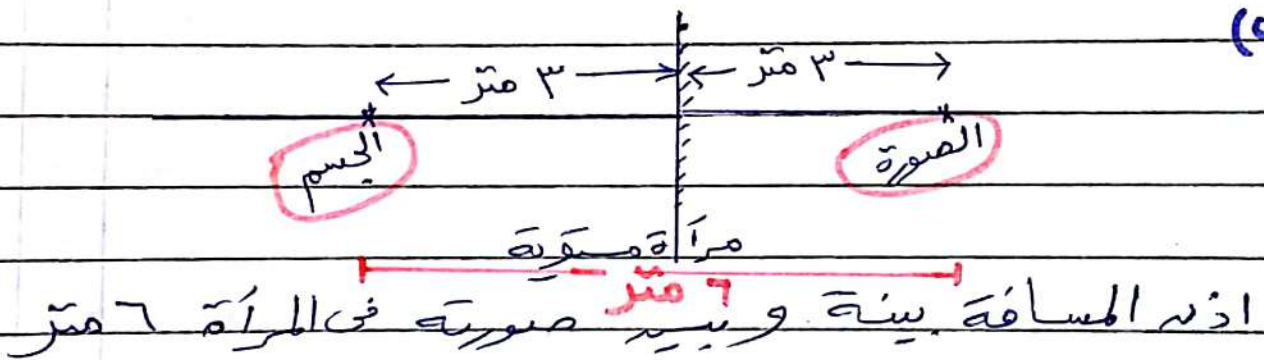 ٥)
٣ متر ٣ متر
الصورة الجسم
مرآة مستوية
٦ متر
اذن المسافة بينة و بين صورته فى المرآة ٦ متر